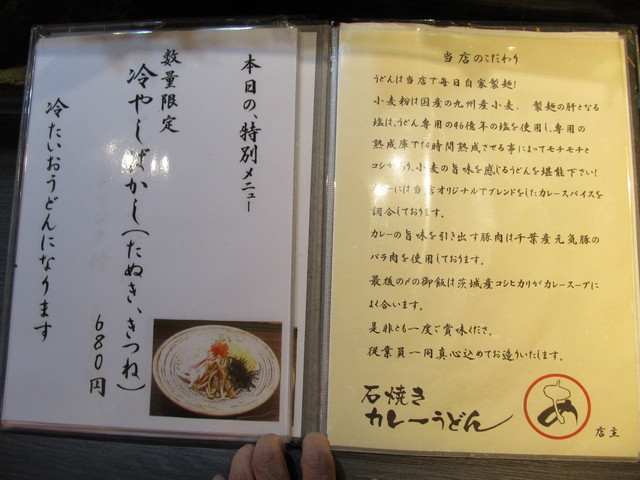 本日の、特別メニュー
数量限定
冷やしばかし(たぬき、きつね)
680円
冷たいおうどんになります
当店のこだわり
うどんは当店で毎日自家製麺!
小麦粉は国産の九州産小麦、製麺の肝となる
塩は、うどん専用の46億年の塩を使用し、専用の
熟成庫で14時間熟成させる事によってモチモチと
コシがあり、小麦の旨味を感じるうどんを堪能下さい!
カレーには当店オリジナルでブレンドをしたカレースパイスを
調合しております。
カレーの旨味を引き出す豚肉は千葉産元気豚の
バラ肉を使用しております。
最後の〆の御飯は茨城産コシヒカリがカレースープに
よく合います。
是非とも一度ご賞味くださ。
従業員一同真心込めてお造りいたします。
石焼き
カレーうどん
店主